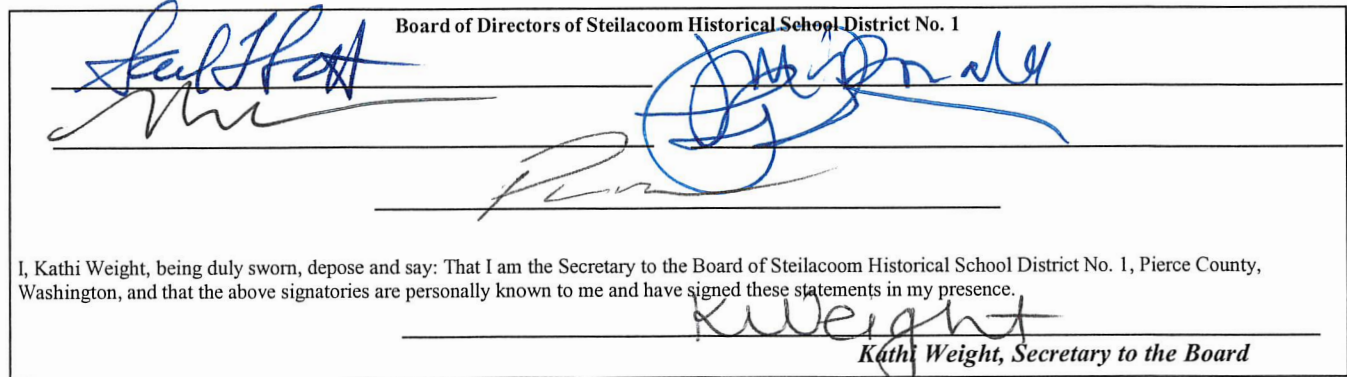 Board of Directors of Steilacoom Historical School District No. 1
I, Kathi Weight, being duly sworn, depose and say: That I am the Secretary to the Board of Steilacoom Historical School District No. 1, Pierce County,
Washington, and that the above signatories are personally known to me and have signed these statements in my presence.
KWeight
Kathi Weight, Secretary to the Board